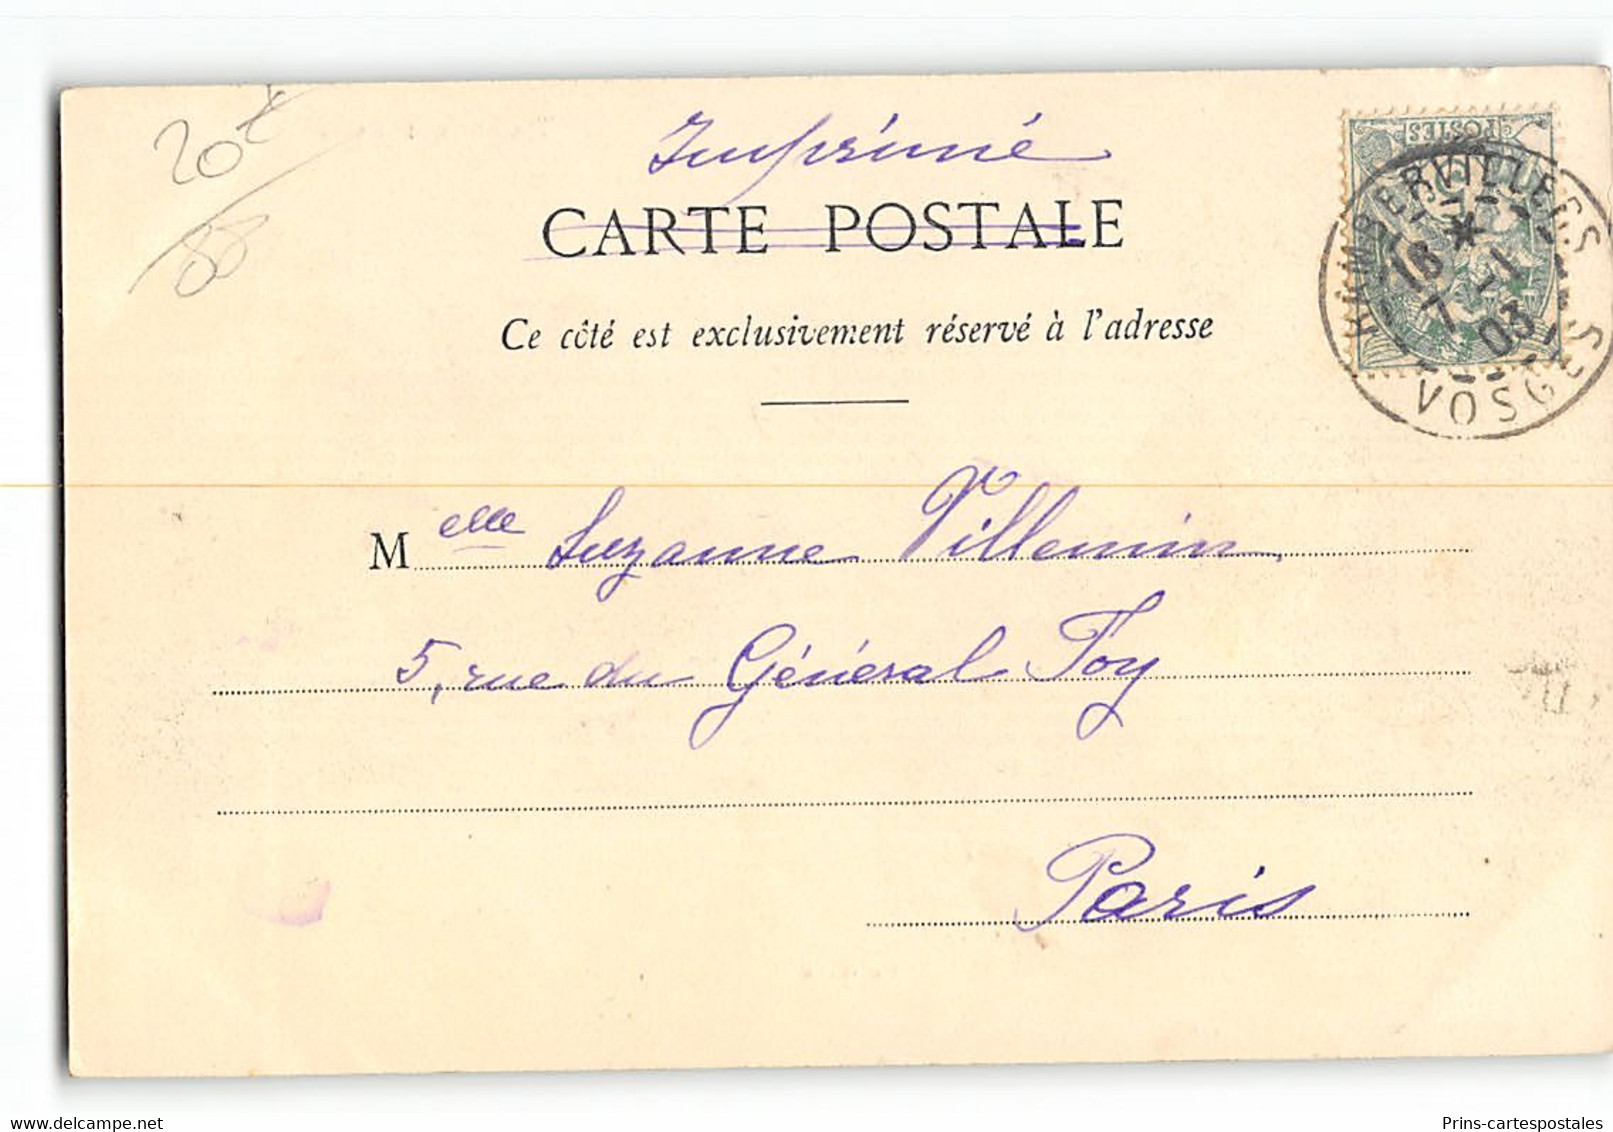 20€
88
Imprimé
CARTE POSTALE
Ce côté est exclusivement réservé à l'adresse
POSTES
RAMBERVILLERS
16
7 -1
03
VOSGES
Melle Suzanne Villemin
5, rue du Général Foy
Paris
www.delcampe.net
Prins-cartespostales